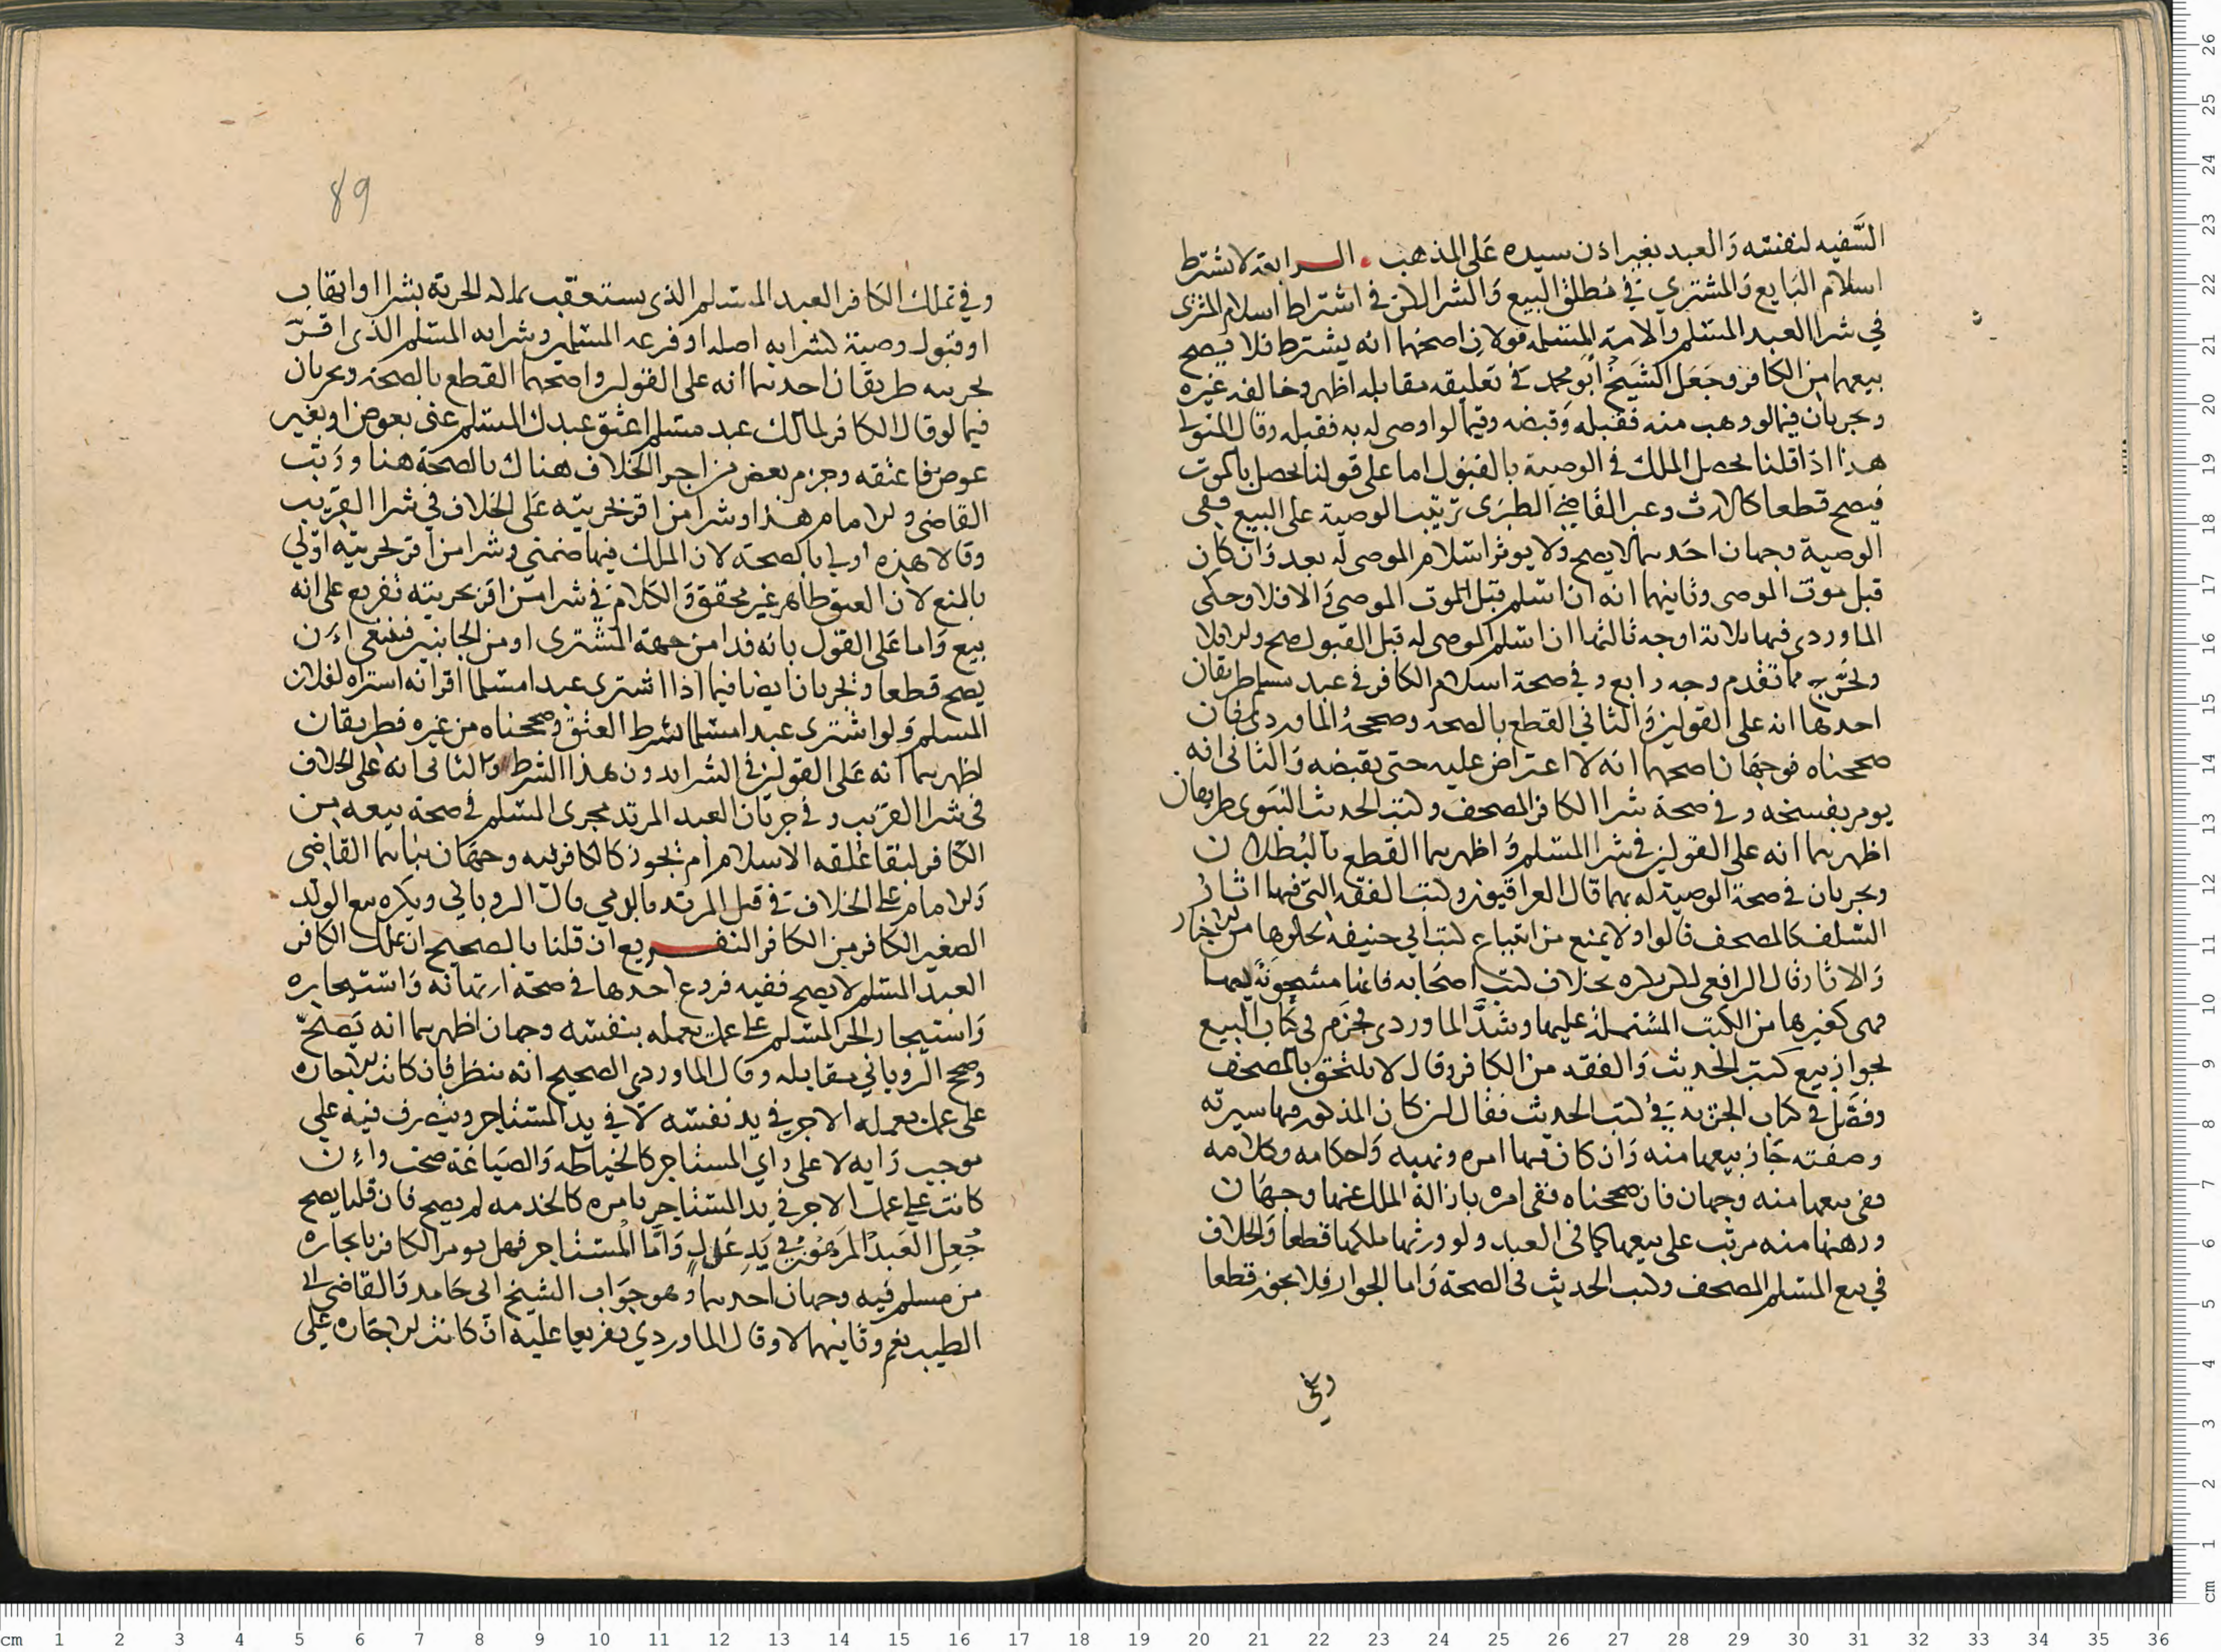 السَّفيه لنفسه وَالعبد بغير اذن سيده عَلى المذهب . الرابعة لا يشترط
اسلام البَايع وَالمشتري في مُطلق البيع وَالشرا لكن في اشتراط اسلام المشترى
في شرا العبد المسلم والامة المسلمه قولان اصحهما انه يشترط فلا يصح
بيعهما من الكافر وجَعَل الشَيخ أبو محمد في تعَليقه مقابله اظهر وخالفه غيره
ويجريان فيما لو وهب منه فقبله وَقبضه وفيما لو اوصى له به فقبله وقال المتولي
هذا اذا قلنا يحصل الملك في الوصية بالقبول اما على قولنا يحصل بالموت
فيصح قطعا كالارث وعبر القاضي الطبرى ترتيب الوصية على البيع ففى
الوصية وجهان احَدهما لا يصح وَلا يوثر اسلام الموصى له بعد وَان كان
قبل موت الموصى وثانيهما انه ان اسلم قبل الموت الموصى وَالا فلا وحكى
الماوردي فيها ثلاثة اوجه ثالثها ان اسلم الموصى له قبل القبول صح والا فلا
ويخرّج مما تقدم وجه رابع وفي صحة اسلام الكافر في عبد مسلم طريقان
احدها انه على القولين وَالثاني القطع بالصحه وصححهُ الماوردي فان
صححناه فوجهَان اصحهما انه لا اعتراض عليه حتى يقبضه وَالثانى انه
يومر بفسخه وفي صحة شرا الكافر المصحف وكتب الحديث النبوى طريقان
اظهرهما انه على القولين في شرا المسلم وَاظهرهما القطع بالبُطلان
ويجريان في صحة الوصية له بهما قال العراقيون وكتب الفقه التي فيها اثارُ
السَّلف كالمصحف قالوا ولا يمنع من ابتياع كتب ابي حنيفه لخلوها من الاخبار
وَالاثار قال الرافعى لكن يكره بخلاف كتب اصحَابه فانها مشحونة بهما
فهى كغيرها من الكتب المشتملة عليها وشذَّ الماوردى فجزَم في كتاب البيع
بجواز بيع كتب الحديث وَالفقه من الكافر وقال لا يلتحق بالمصحف
وفصَّل في كتاب الجزية في كتب الحديث فقال ان كان المذكور فيها سيرته
وصفته جَاز بيعها منه وَان كان فيها امره ونهيه وَاحكامه وكلامه
ففى بيعها منه وجهان فان صححناه ففى امره بازالة الملك عنها وجهَان
ورهنها منه مرتب على بيعهما كما فى العبد ولو ورثهما ملكهما قطعا وَالخلاف
في بيع المسلم المصحف وكتب الحديث فى الصحة وَاما الجواز فلا يجوز قطعا
وفي
89
وفي تملك الكَافر العبد المسلم الذى يستعقب تملكه الحرية بشرا او ايهاب
او قبول وصية كشرايه اصله او فرعه المسلم وشرايه المسلم الذى اقَرّ
بحريته طريقان احدهما انه على القولين واصحهما القطع بالصحة ويجريان
فيما لو قال الكافر لمالك عبد مسلم اعتق عبدك المسلم عنى بعوض او بغير
عوض فاعتقه وجزم بعض من اجرا الخلاف هناك بالصحة هنا وَرتب
القاضى والامام هذا وشرا من اقر بحريته عَلى الخلاف في شرا القريب
وقالا هذه اولي بالصحة لان الملك فيها ضمني وشرا من اقر بحريته اوّلي
بالمنع لان العتق ظاهر غير محقق وَالكلام في شرا من اقر بحريته تفريع على انه
بيع وَاما عَلى القول بانه فدا من جهة المشترى او من الجانبين فينبغى اءن
يصح قطعا ويجريان ايضا فيما اذا اشترى عبدا مسلما اقر انه اشتراه لفلان
المسلم وَلو اشترى عبدا مسلما بشرط العتق وصححناه من غيره فطريقان
اظهرهما انه عَلى القولين في الشرا بدون هذا الشرط وَالثانى انه على الخلاف
فى شرا القريب وفي جريان العبد المرتد مجرى المسلم في صحة بيعه من
الكافر لبقا عُلقه الاسلام أم يجوز كالكافر فيه وجهان بناهما القاضى
وَالامام على الخلاف في قتل المرتد بالذمي قال الرويانى ويكره بيع الولد
الصغير الكافر من الكافر التفريع ان قلنا بالصحيح ان تملك الكافر
العبد المسلم لا يصح ففيه فروع احدها في صحة ارتهانه وَاستيجاره
وَاستيجار الحر المسلم على عمل يعمله بنفسه وجهان اظهرهما انه يَصحّ
وصحح الروياني مقابله وقال الماوردي الصحيح انه ينظر فان كانت الاجاره
على عمل يعمله الاجير في يد نفسه لا في يد المستاجر ويتصرف فيه علي
موجب رَايه لا على راي المستاجر كالخياطه وَالصيَاغة صحت واءن
كانت علي عمل الاجير في يد المستاجر بامره كالخدمه لم يصح فان قلنا يصح
جُعِل العَبدُ المرَهُونُ في يَدِ عَدل وَامَّا المُستاجر فهل يومر الكافر بايجاره
من مسلم فيه وجهان احدهما وهو جوَاب الشيخ ابى حَامد وَالقاضى ابي
الطيب نعم وثانيهما لا وقال الماوردي تفريعا عليه ان كانت الاجَاره على